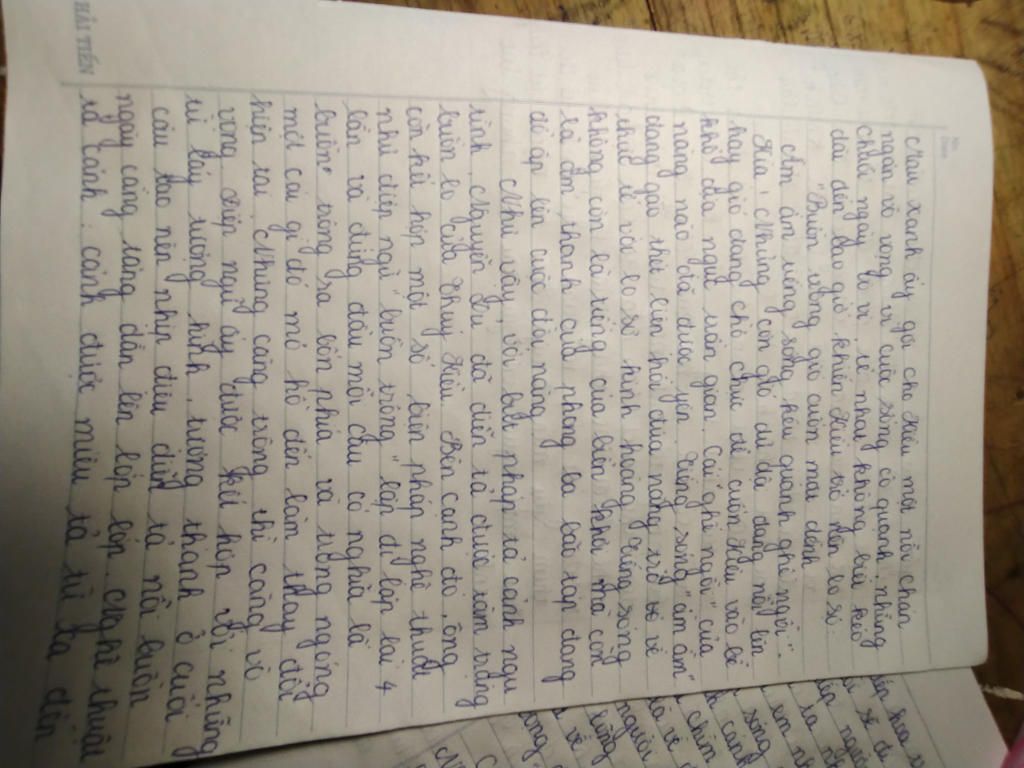 Màu xanh ấy gợi cho Kiều một nỗi chán
ngán vô vọng vì cuộc sống cô quanh, những
chuỗi ngày vô vị, tẻ nhạt không biết kéo
dài đến bao giờ khiến Kiều trở nên lo sợ:
"Buồn trông gió cuốn mặt duềnh
Ầm ầm tiếng sóng kêu quanh ghế ngồi".
Kìa! Những cơn gió dữ dội đang nổi lên
hay gió đang chờ chực để cuốn Kiều vào bể
khổ của người trần gian. Cái "ghế ngồi" của
nàng nào đã được yên. Tiếng sóng "ầm ầm"
đang gào thét liên hồi đưa nàng trở về với
thực tế với lo sợ kinh hoàng. Tiếng sóng
không còn là tiếng của biển khơi mà còn
là âm thanh của phong ba bão táp đang
đổ ập lên cuộc đời nàng.
Như vậy, với bút pháp tả cảnh ngụ
tình, Nguyễn Du đã diễn tả được tâm trạng
buồn lo của Thúy Kiều. Bên cạnh đó, ông
còn kết hợp một số biện pháp nghệ thuật
như điệp ngữ "buồn trông" lặp đi lặp lại 4
lần và đứng đầu mỗi câu có nghĩa là
buồn trông ra bốn phía và trông ngóng
một cái gì đó mơ hồ đến làm thay đổi
hiện tại. Nhưng càng trông thì càng vô
vọng. Điệp ngữ ấy được kết hợp với những
từ láy tượng hình, tượng thanh ở cuối
câu tạo nên nhịp điệu diễn tả nỗi buồn
ngày càng tăng dần lên lớp lớp. Nghệ thuật
tả cảnh: cảnh được miêu tả từ xa đến
HẢI TIẾN